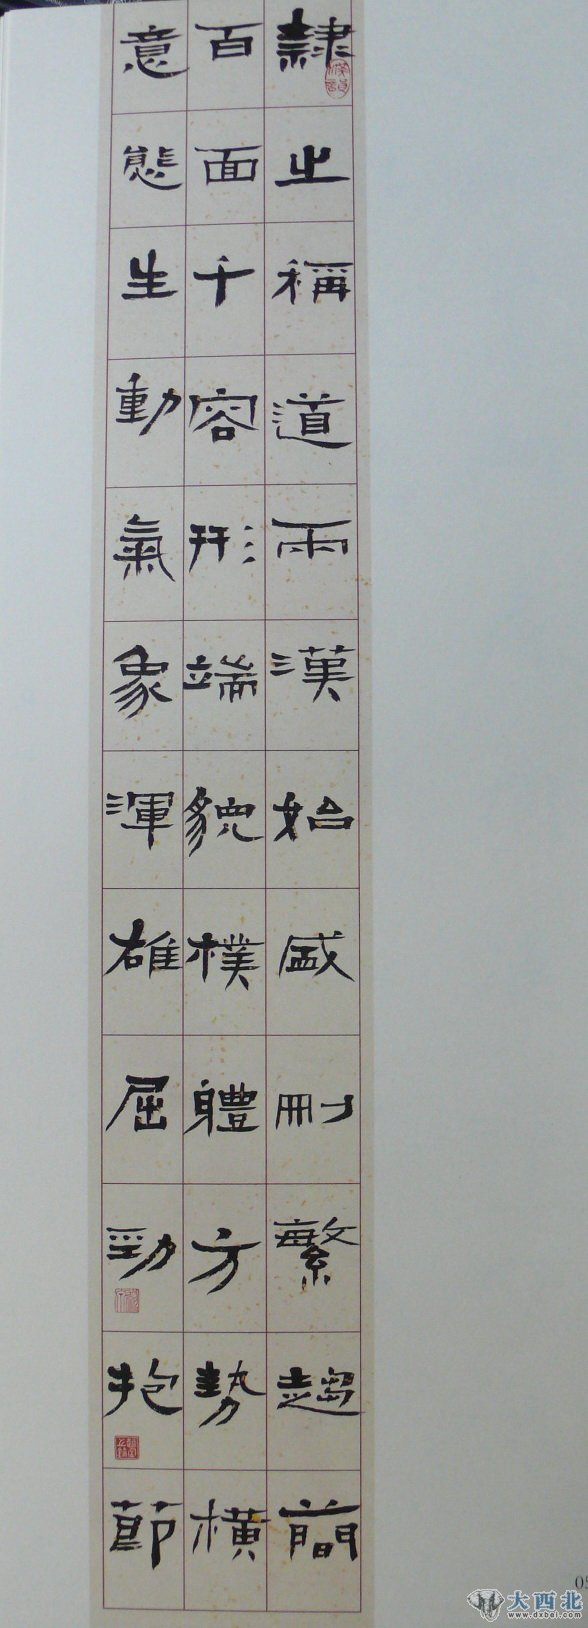 隸之稱道兩漢始盛刪繁趨簡
百面千容形端貌樸體方勢橫
意態生動氣象渾雄屈勁抱節
05
大西北
www.dxbei.com